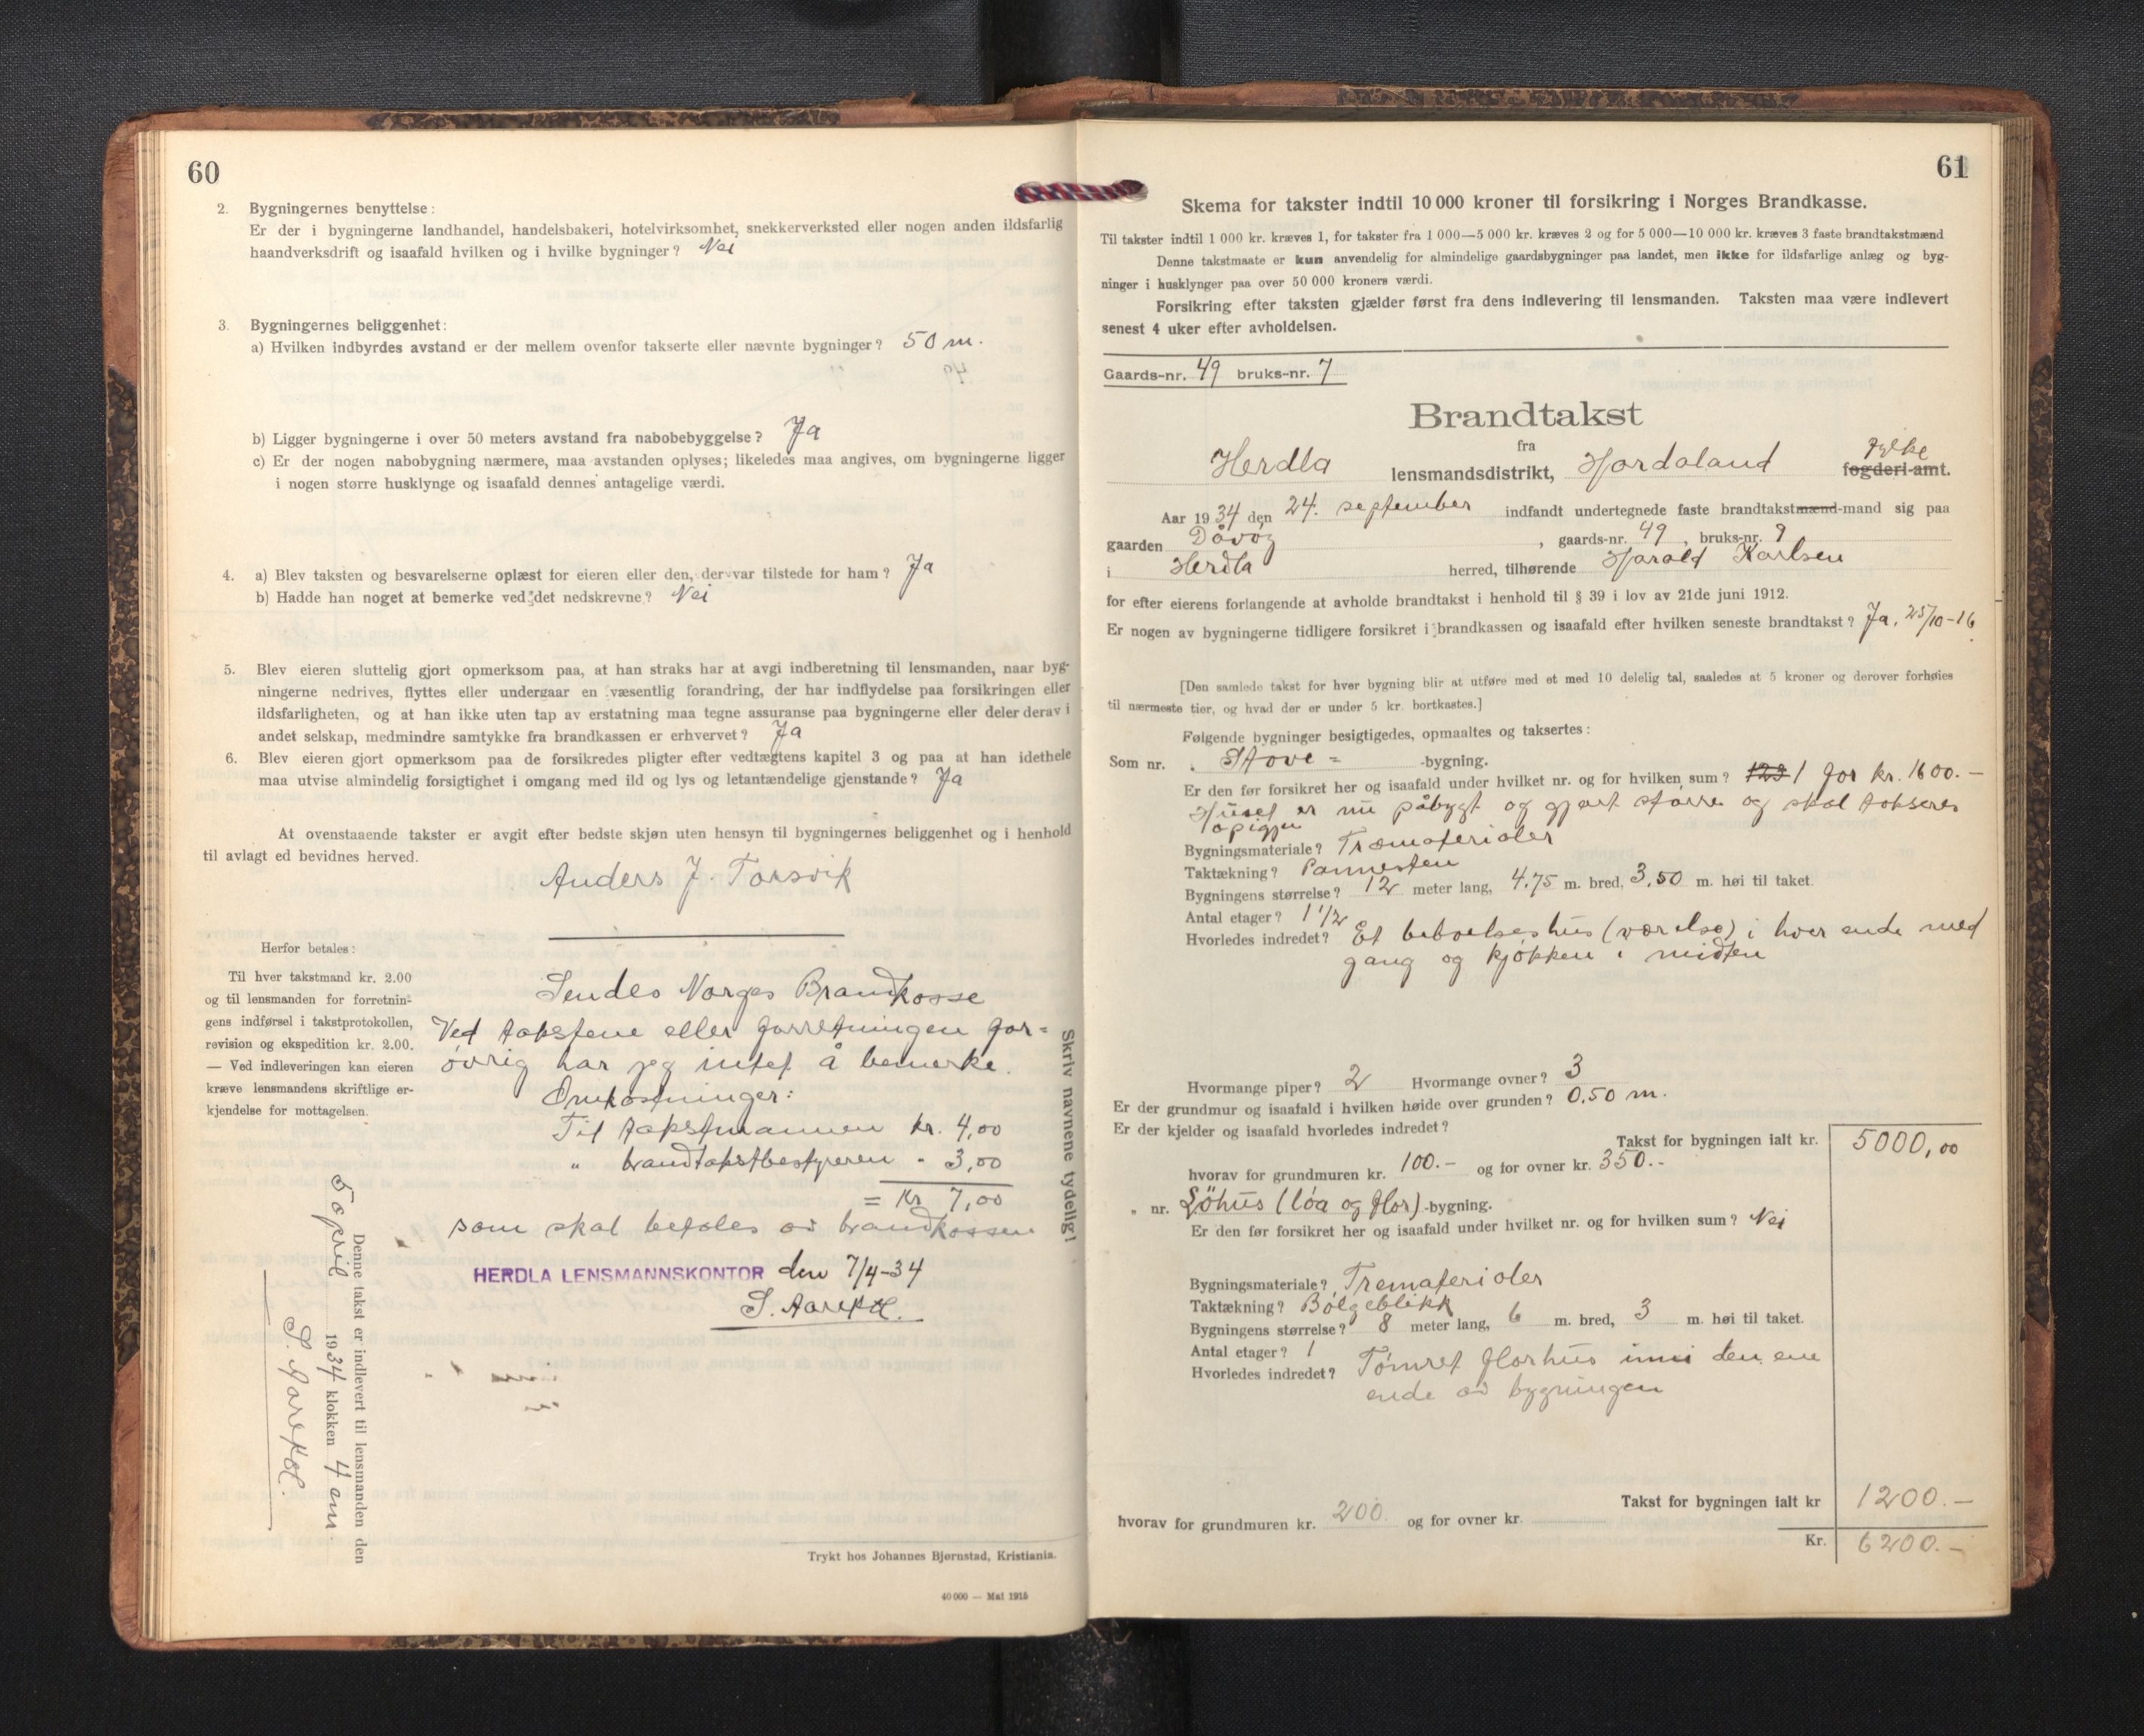 60
2. Bygningernes benyttelse:
Er der i bygningerne landhandel, handelsbakeri, hotelvirksomhet, snekkerverksted eller nogen anden ildsfarlig
haandverksdrift og isaafald hvilken og i hvilke bygninger? Nei
3. Bygningernes beliggenhet:
a) Hvilken indbyrdes avstand er der mellem ovenfor takserte eller nævnte bygninger? 50 m.
b) Ligger bygningerne i over 50 meters avstand fra nabobebyggelse? Ja
c) Er der nogen nabobygning nærmere, maa avstanden oplyses; likeledes maa angives, om bygningerne ligger
i nogen større husklynge og isaafald dennes antagelige værdi.
4. a) Blev taksten og besvarelserne oplæst for eieren eller den, der var tilstede for ham? Ja
b) Hadde han noget at bemerke ved det nedskrevne? Nei
5. Blev eieren sluttelig gjort opmerksom paa, at han straks har at avgi indberetning til lensmanden, naar byg-
ningerne nedrives, flyttes eller undergaar en væsentlig forandring, der har indflydelse paa forsikringen eller
ildsfarligheten, og at han ikke uten tap av erstatning maa tegne assuranse paa bygningerne eller deler derav i
andet selskap, medmindre samtykke fra brandkassen er erhvervet? Ja
6. Blev eieren gjort opmerksom paa de forsikredes pligter efter vedtægtens kapitel 3 og paa at han idethele
maa utvise almindelig forsigtighet i omgang med ild og lys og letantændelige gjenstande? Ja
At ovenstaaende takster er avgit efter bedste skjøn uten hensyn til bygningernes beliggenhet og i henhold
til avlagt ed bevidnes herved.
Anders J. Torsvik
Herfor betales:
Til hver takstmand kr. 2.00
og til lensmanden for forretnin-
gens indførsel i takstprotokollen,
revision og ekspedition kr. 2.00.
— Ved indleveringen kan eieren
kræve lensmandens skriftlige er-
kjendelse for mottagelsen.
Sendes Norges Brandkasse
Ved takstene eller forretningen for-
øvrig har jeg intet å bemerke.
Omkostninger:
Til takstmannen kr. 4,00
" brandtakstbestyreren " 3,00
= Kr 7,00
som skal betales av brandkassen
HERDLA LENSMANNSKONTOR den 7/4-34
Skriv navnene tydelig!
Denne takst er indlevert til lensmanden den
5 april 1934 klokken 4 em.
Trykt hos Johannes Bjørnstad, Kristiania.
40 000 — Mai 1915
61
Skema for takster indtil 10 000 kroner til forsikring i Norges Brandkasse.
Til takster indtil 1 000 kr. kræves 1, for takster fra 1 000—5 000 kr. kræves 2 og for 5 000—10 000 kr. kræves 3 faste brandtakstmænd
Denne takstmaate er kun anvendelig for almindelige gaardsbygninger paa landet, men ikke for ildsfarlige anlæg og byg-
ninger i husklynger paa over 50 000 kroners værdi.
Forsikring efter taksten gjælder først fra dens indlevering til lensmanden. Taksten maa være indlevert
senest 4 uker efter avholdelsen.
Gaards-nr. 49 bruks-nr. 7
Brandtakst
fra
Herdla lensmandsdistrikt, Hordaland fylke fogderi-amt.
Aar 1934 den 24. september indfandt undertegnede faste brandtakstmænd-mand sig paa
gaarden Dåvøy, gaards-nr. 49, bruks-nr. 9
i Herdla herred, tilhørende Harald Karlsen
for efter eierens forlangende at avholde brandtakst i henhold til § 39 i lov av 21de juni 1912.
Er nogen av bygningerne tidligere forsikret i brandkassen og isaafald efter hvilken seneste brandtakst? Ja, 25/10-16
[Den samlede takst for hver bygning blir at utføre med et med 10 delelig tal, saaledes at 5 kroner og derover forhøies
til nærmeste tier, og hvad der er under 5 kr. bortkastes.]
Følgende bygninger besigtigedes, opmaaltes og taksertes:
Som nr. Stove - -bygning.
Er den før forsikret her og isaafald under hvilket nr. og for hvilken sum? 123 1 for kr. 1600.-
Huset er nu påbygt og gjort større og skal takseres
opigjen
Bygningsmateriale? Træmaterialer
Taktækning? Pannesten
Bygningens størrelse? 12 meter lang, 4,75 m. bred, 3,50 m. høi til taket.
Antal etager? 1 1/2
Hvorledes indredet? Et beboelseshus (værelse) i hver ende med
gang og kjøkken i midten
Hvormange piper? 2 Hvormange ovner? 3
Er der grundmur og isaafald i hvilken høide over grunden? 0,50 m.
Er der kjelder og isaafald hvorledes indredet?
Takst for bygningen ialt kr. 5000,00
hvorav for grundmuren kr. 100.- og for ovner kr. 350.-
" nr. Löhus (løa og flor) -bygning.
Er den før forsikret her og isaafald under hvilket nr. og for hvilken sum? Nei
Bygningsmateriale? Trematerialer
Taktækning? Bølgeblikk
Bygningens størrelse? 8 meter lang, 6 m. bred, 3 m. høi til taket.
Antal etager? 1
Hvorledes indredet? Tømret florhus inni den ene
ende av bygningen
Takst for bygningen ialt kr 1200.-
hvorav for grundmuren kr. 200. og for ovner kr.
Kr. 6200.-